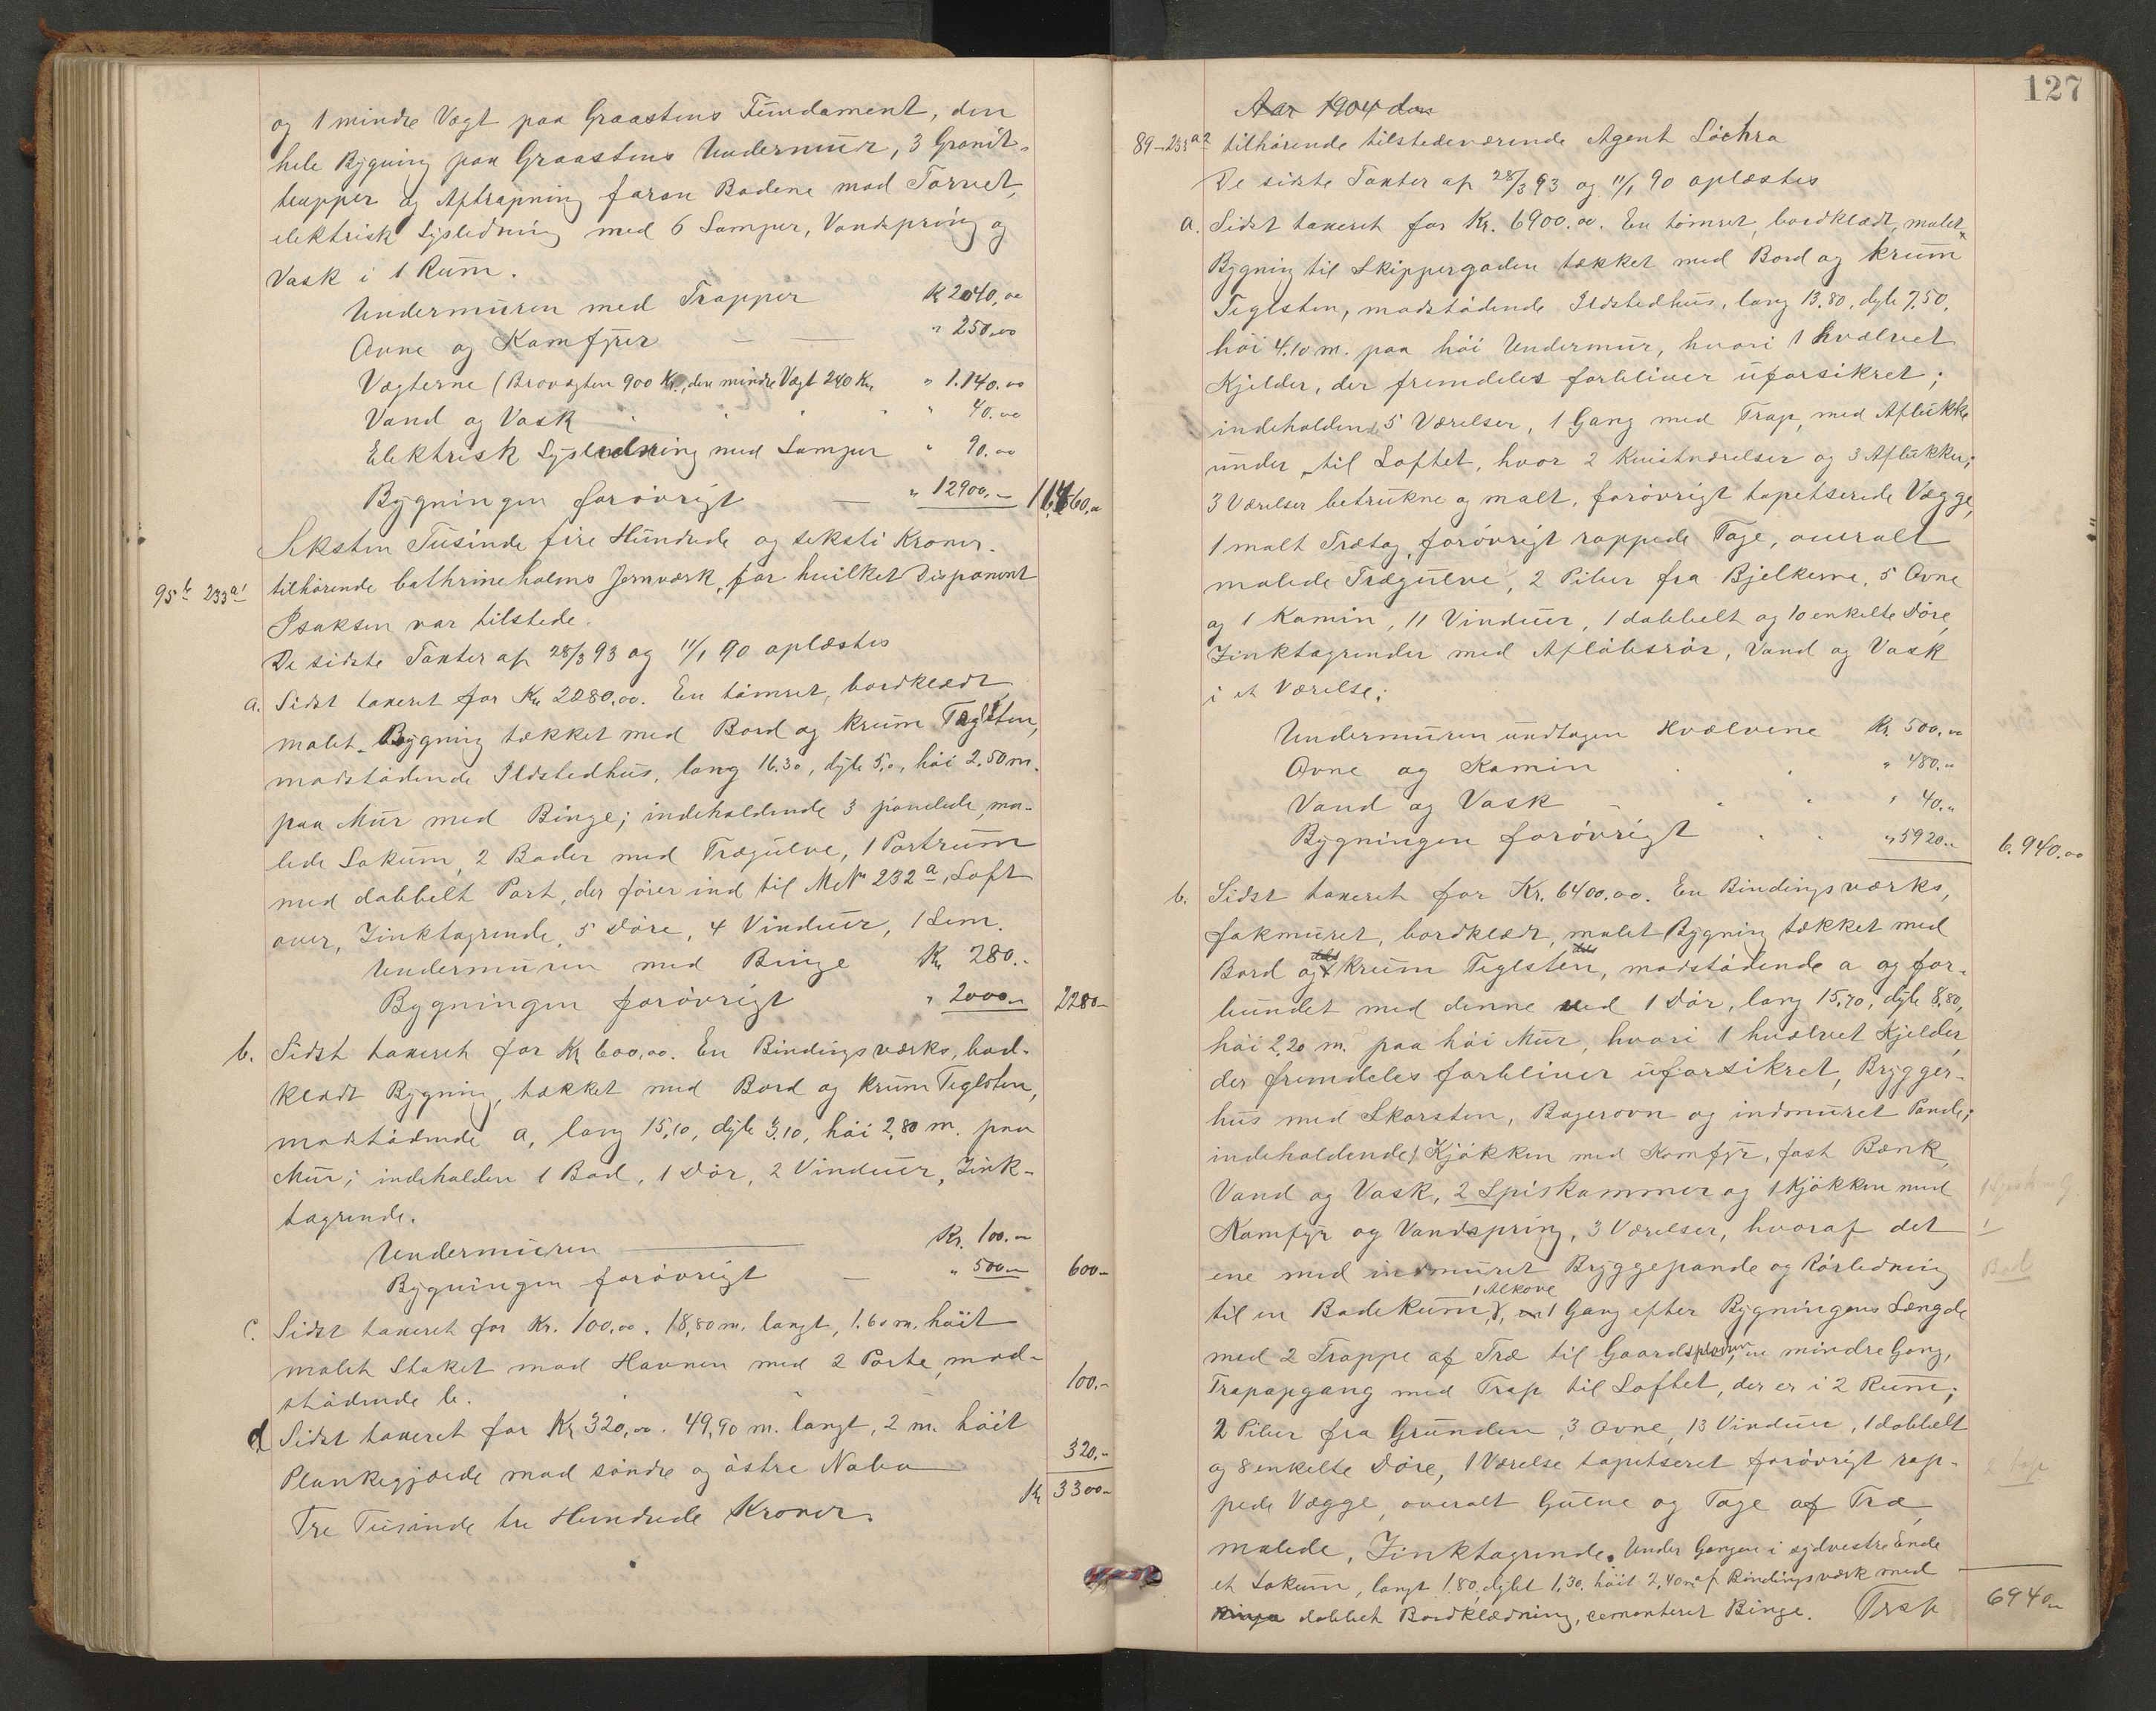 og 1 mindre Vægt paa Graastens Fundament, den
hele Bygning paa Graastens Undermur, 3 Granit-
trapper og Aftrapning foran Boderne mod Torvet,
elektrisk Lysledning med 6 Lamper, Vandspring og
Vask i 1 Rum.
Undermuren med Trapper Kr 2040,00
Ovne og Komfyrer " 250,00
Vægterne (Brovægten 900 Kr., den mindre Vægt 240 Kr. " 1.140.00
Vand og Vask " 40.00
Elektrisk Lysledning med Lamper " 90.00
Bygningen forøvrigt " 12900.- 16460,00
Seksten Tusinde fire Hundrede og seksti Kroner.
95b 233a1 tilhørende Cathrineholms Jernværk, for hvilket Disponent
Isaksen var tilstede.
De sidste Taxter af 28/3 93 og 11/1 90 oplæstes
a. Sidst taxeret for Kr. 2280,00. En tømret, bordklædt,
malet Bygning tækket med Bord og krum Teglsten,
modstødende Ildstedhus, lang 16.30, dyb 5,0, høi 2.50 m.
paa Mur med Binge; indeholdende 3 panelede, ma-
lede Lokum, 2 Boder med Trægulve, 1 Portrum
med dobbelt Port, der fører ind til M.N. 232a, Loft
over, Zinktagrende, 5 Døre, 4 Vinduer, 1 Lem.
Undermuren med Binge Kr 280.-
Bygningen forøvrigt " 2000.- 2280-
b. Sidst taxeret for Kr 600,00. En Bindingsværks, bord-
klædt Bygning, tækket med Bord og krum Teglsten,
modstødende a, lang 15,10, dyb 3,10, høi 2,80 m. paa
Mur; indeholden 1 Bod, 1 Dør, 2 Vinduer, Zink-
tagrende.
Undermuren Kr. 100.-
Bygningen forøvrigt " 500.- 600-
c. Sidst taxeret for Kr. 100,00. 18,80 m. langt, 1.60 m. høit
malet Staket mod Havnen med 2 Porte, mod-
stødende b. 100.-
d Sidst taxeret for Kr 320,00. 49,90 m. langt, 2 m. høit
Plankegjærde mod søndre og østre Nabo 320.-
Kr 3300-
Tre Tusinde tre Hundrede Kroner.
127
Aar 1904 den
89-233a2 tilhørende tilstedeværende Agent Löchra
De sidste Taxter af 28/3 93 og 11/1 90 oplæstes
a. Sidst taxeret for Kr. 6900.00. En tømret, bordklædt, malet
Bygning til Skippergaden tækket med Bord og krum
Teglsten, modstødende Ildstedhus, lang 13.80, dyb 7,50,
høi 4.10 m. paa høi Undermur, hvori 1 hvælvet
Kjelder, der fremdeles forbliver uforsikret;
indeholdend 5 Værelser, 1 Gang med Trap, med Aflukke
under, til Loftet, hvor 2 Kvistværelser og 3 Aflukker;
3 Værelser betrukne og malt, forøvrigt tapetserede Vægge,
1 malt Trætag, forøvrigt rappede Tage, overalt
malede Trægulve, 2 Piber fra Bjelkerne, 5 Ovne
og 1 Kamin, 11 Vinduer, 1 dobbelt og 10 enkelte Døre,
Zinktagrender med Afløbsrør, Vand og Vask
i et Værelse;
Undermuren undtagen Hvælvene Kr. 500,00
Ovne og Kamin " 480.-
Vand og Vask " 40.-
Bygningen forøvrigt " 5920.- 6.940.00
b. Sidst taxeret for Kr. 6400.00. En Bindingsværks,
fakmuret, bordklædt, malet Bygning tækket med
Bord og krum Teglsten, modstødende a og for-
bundet med denne ved 1 Dør, lang 15,70, dyb 8,80,
høi 2,20 m. paa høi Mur, hvori 1 hvælvet Kjelder,
der fremdeles forbliver uforsikret, Brygger-
hus med Skorsten, Bagerovn og indmuret Pande;
indeholdende 1 Kjøkken med Komfyr, fast Bænk,
Vand og Vask, 2 Spiskammer og 1 Kjøkken med
Komfyr og Vandspring, 3 Værelser, hvoraf det
ene med indmuret Bryggepande og Rørledning
til en Badekum, 1 Alkove, 1 Gang efter Bygningens Længde
med 2 Trappe af Træ til Gaardspladsen, en mindre Gang,
Trapopgang med Trap til Loftet, der er i 2 Rum;
2 Piber fra Grunden, 3 Ovne, 13 Vinduer, 1 dobbelt
og 8 enkelte Døre, 1 Værelse tapetseret forøvrigt rap-
pede Vægge, overalt Gulve og Tage af Træ,
malede, Zinktagrende. Under Gangen i sydvestre Ende
et Lokum, langt 1.80, dybt 1.30, høit 2,40 m af Bindingsværk med
dobbelt Bordklædning, cementeret Binge. Trap
6940.-